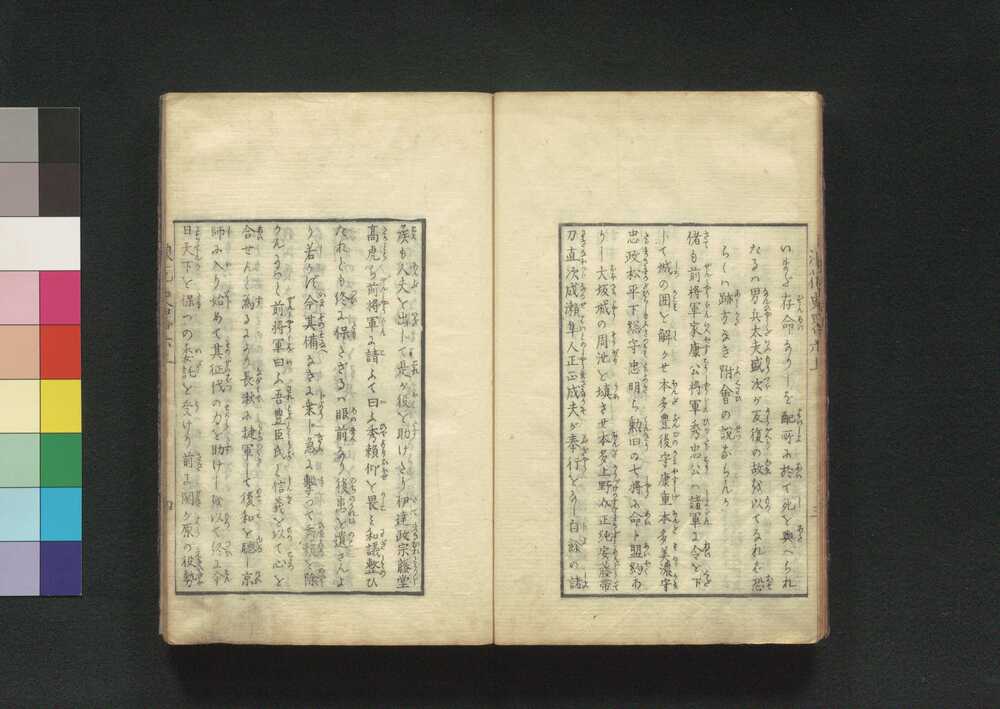 いまだ存命なりしを配所に於て死を與へられ
たるハ男兵太夫盛次が反復の故を以てなれば恐
らくハ跡方なき附會の説ならんか
偖も前将軍家康公将軍秀忠公ハ諸軍に令を下
して城の囲を解かせ本多豊後守康重本多美濃守
忠政松平下総守忠明ら勲旧の七将に命じ盟約の
ごとく大坂城の周池を填させ本多上野介正純安藤帯
刀直次成瀬隼人正正成夫が奉行となし自餘の諸
侯も人夫を出して是が役を助けたり伊達政宗藤堂
高虎ら前将軍に請ふて曰よ秀頼仰を畏み和議整ひ
たれども終に保たざるハ眼前なり後患を遺さんよ
り若かず今其備なきに乗じ急に撃つて秀頼を除
かんにハ前将軍曰よ吾豊臣氏と信義を以て心を
合せんと為るにより長湫に捷軍して後和を聴し京
師に入り始めて其征伐の力を助けし を以て終に今
日天下を保つの委託を受けり前に関ヶ原の役勢